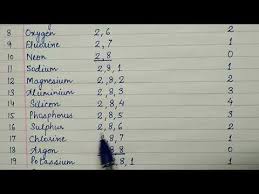 8 Oxygen 2, 6 2
9 Fluorine 2, 7 1
10 Neon 2, 8 0
11 Sodium 2, 8, 1 1
12 Magnesium 2, 8, 2 2
13 Aluminium 2, 8, 3 3
14 Silicon 2, 8, 4 4
15 Phosphorus 2, 8, 5 3
16 Sulphur 2, 8, 6 2
17 Chlorine 8, 7 1
18 Argon 8, 8 0
19 Potassium 8, 8, 1 1